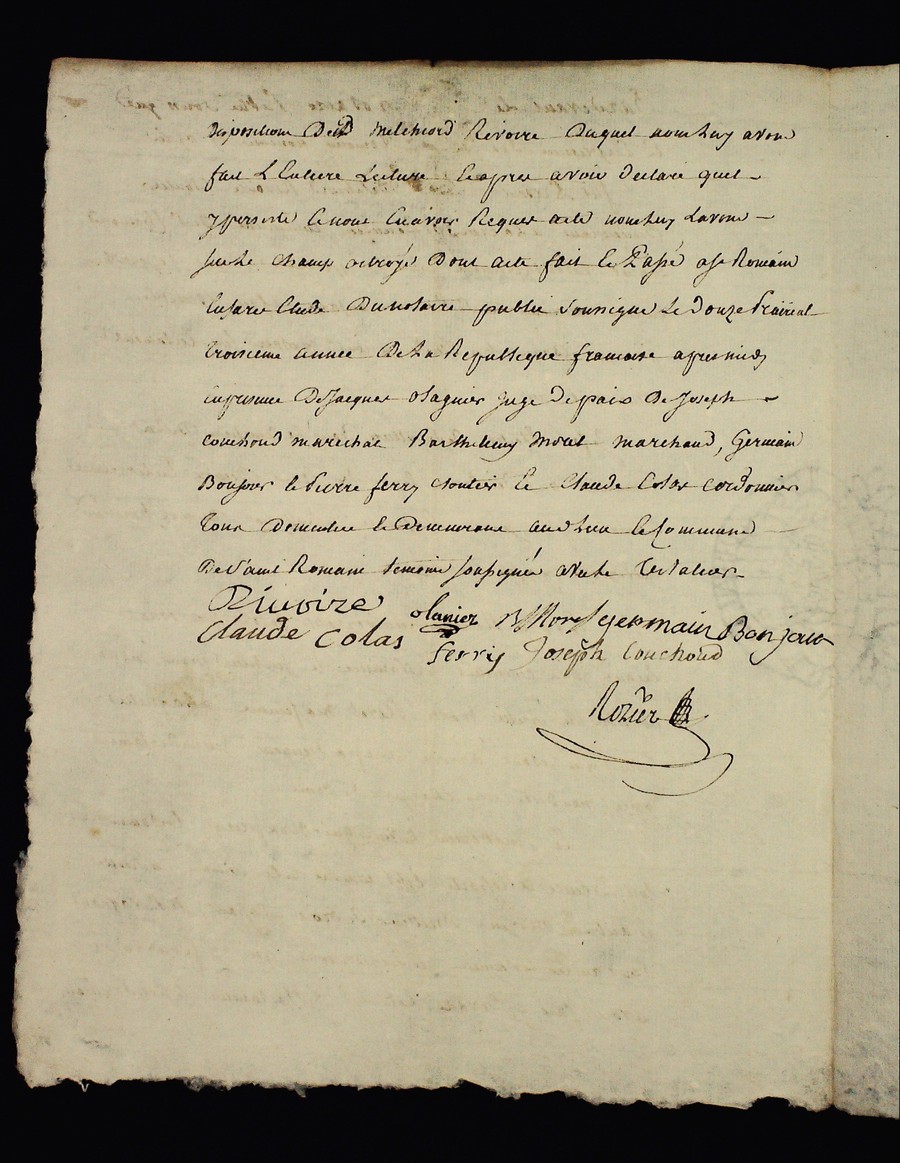 disposition Dud Melchiord Révoire Duquel nom luy avons
fait L'Entiere Lecture Et apres avoir declaré quel
y persiste Et nous En avoir Requis acte nous luy Lavons
sur Le Champ octroyé Dont acte fait Et Passé a St Romain
En facée Etude Du notaire public soussigné Le Douze Prairial
troisieme année De La Republicque francaise apres midy
En presence De Jacques olagnier juge De paix De Joseph
Couchoud maréchal Barthelemy Moret marchand, Germain
Bonjour Et Pierre ferry cloutier Et Claude Colas cordonnier
Tous Domicilié Et Demeurant aud lieu Et Commune
De Saint Romain temoins soussignés avec Le Testateur
Riuoire
olanier
B Moret
germain Bonjour
Claude Colas
ferry
Joseph Couchoud
Rozier